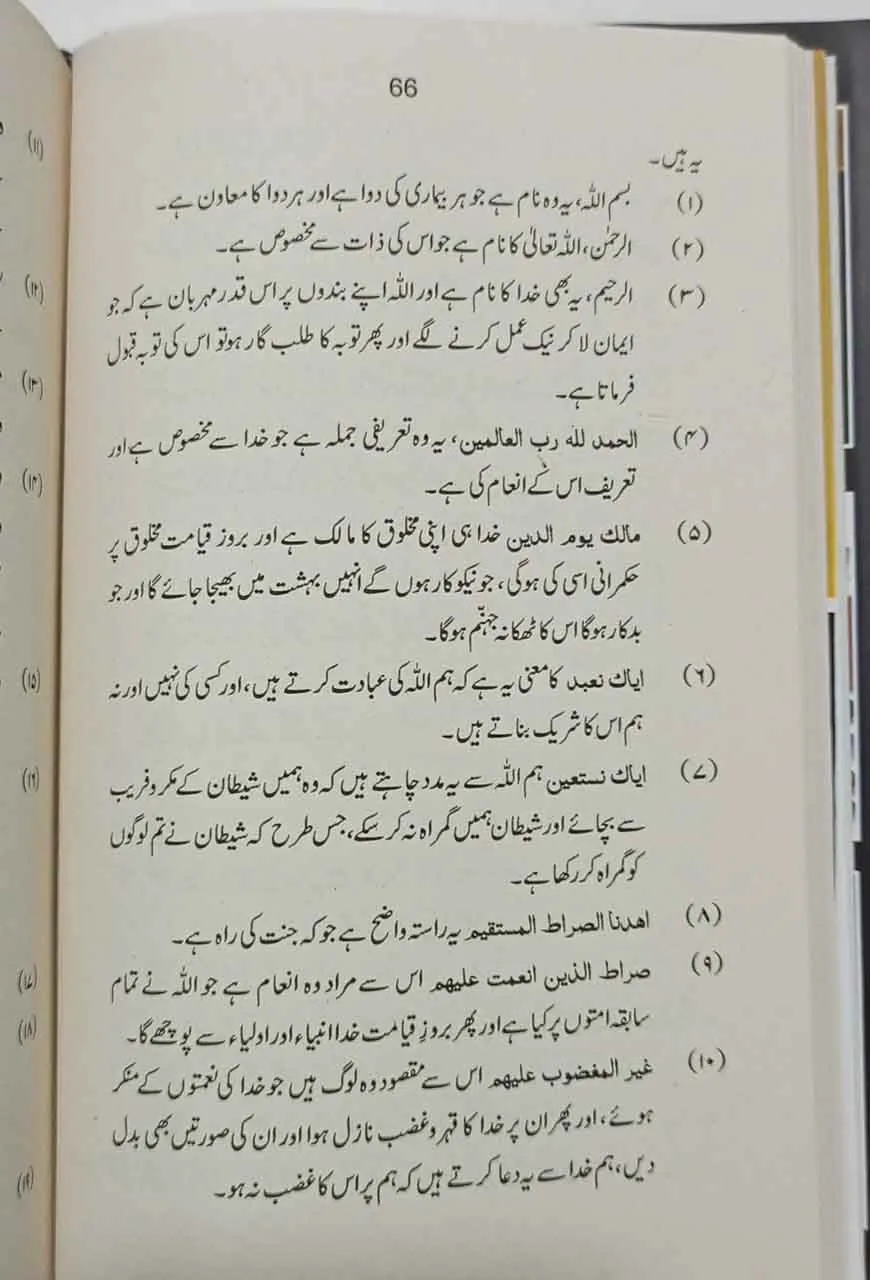 66
یہ ہیں۔
(۱) بسم اللہ، یہ وہ نام ہے جو ہر بیماری کی دوا ہے اور ہر دوا کا معاون ہے۔
(۲) الرحمٰن، اللہ تعالیٰ کا نام ہے جو اس کی ذات سے مخصوص ہے۔
(۳) الرحیم، یہ بھی خدا کا نام ہے اور اللہ اپنے بندوں پر اس قدر مہربان ہے کہ جو
ایمان لا کر نیک عمل کرنے لگے اور پھر توبہ کا طلب گار ہو تو اس کی توبہ قبول
فرماتا ہے۔
(۴) الحمد لله رب العالمين، یہ وہ تعریفی جملہ ہے جو خدا سے مخصوص ہے اور
تعریف اس کے انعام کی ہے۔
(۵) مالك يوم الدين خدا ہی اپنی مخلوق کا مالک ہے اور بروز قیامت مخلوق پر
حکمرانی اسی کی ہوگی، جو نیکو کار ہوں گے انہیں بہشت میں بھیجا جائے گا اور جو
بدکار ہوگا اس کا ٹھکانہ جہنّم ہوگا۔
(۶) اياك نعبد کا معنی یہ ہے کہ ہم اللہ کی عبادت کرتے ہیں، اور کسی کی نہیں اور نہ
ہم اس کا شریک بناتے ہیں۔
(۷) اياك نستعين ہم اللہ سے یہ مدد چاہتے ہیں کہ وہ ہمیں شیطان کے مکر و فریب
سے بچائے اور شیطان ہمیں گمراہ نہ کر سکے، جس طرح کہ شیطان نے تم لوگوں
کو گمراہ کر رکھا ہے۔
(۸) اهدنا الصراط المستقيم یہ راستہ واضح ہے جو کہ جنت کی راہ ہے۔
(۹) صراط الذين انعمت عليهم اس سے مراد وہ انعام ہے جو اللہ نے تمام
سابقہ امتوں پر کیا ہے اور پھر بروزِ قیامت خدا انبیاء اور اولیاء سے پوچھے گا۔
(۱۰) غير المغضوب عليهم اس سے مقصود وہ لوگ ہیں جو خدا کی نعمتوں کے منکر
ہوئے، اور پھر ان پر خدا کا قہر و غضب نازل ہوا اور ان کی صورتیں بھی بدل
دیں، ہم خدا سے یہ دعا کرتے ہیں کہ ہم پر اس کا غضب نہ ہو۔
(۱۱)
(۱۲)
(۱۳)
(۱۴)
(۱۵)
(۱۶)
(۱۷)
(۱۸)
(۱۹)